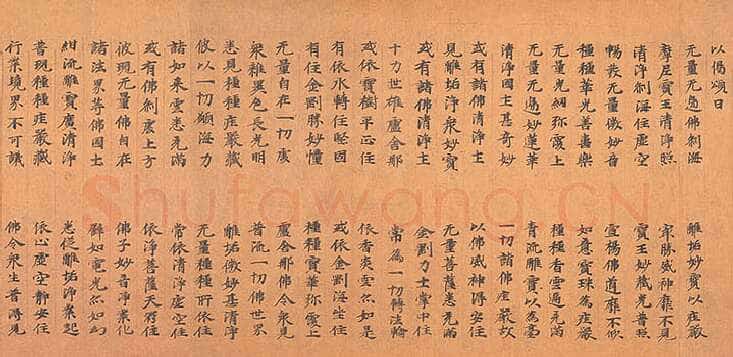 以偈頌曰
无量无邊佛剎海　離垢妙寶以莊嚴
摩尼寶王清淨照　勝威神靡不見
清淨剎海住虛空　寶王妙藏光普照
暢發无量微妙音　宣揚佛道靡不
種種華光善樂　如意寶珠為莊嚴
无量光網弥覆上　種種香雲遍充滿
无量无邊妙蓮華　青流離寶以為臺
清淨國土甚奇妙　一切諸佛嚴故
或有諸佛清淨土　以佛威神得安住
見離垢淨眾妙寶　无量菩薩悉充滿
或有諸佛清淨土　金剛力士掌中住
十力世雄盧舍那　常為一切轉法輪
或依寶樹平正住　依香炎雲亦如是
有依水轉住堅固　或依金剛海生住
有住金剛勝妙幢　種種寶華弥覆上
无量自在一切處　盧舍那佛令眾見
眾雜異色長光明　普流一切佛世界
悉見種種莊嚴藏　離垢微妙甚清淨
彼以一切願海力　无量種種所依住
諸如來雲悉充滿　常依清淨虛空住
或有佛剎處上方　依淨菩薩天冠住
彼現无量佛自在　佛子妙音淨業化
諸法界等佛國土　譬如電光亦如幻
紺流離寶廣清淨　悉從離垢淨業起
普現種種莊嚴藏　依止虛空靜安住
行業境界不可議　佛令眾生普得見
Shufawang.CN